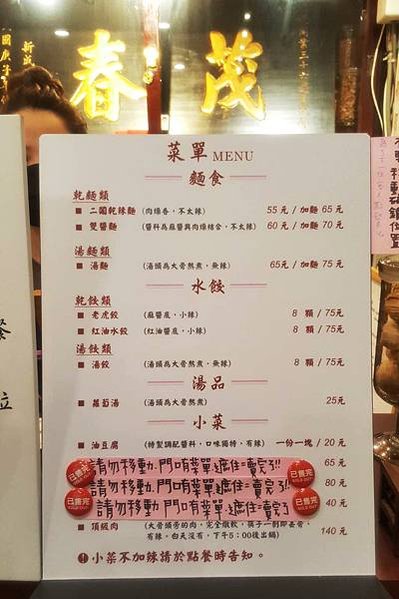 春 茂
菜單 MENU
麵食
乾麵類
二閣乾辣麵 (肉燥香,不太辣) 55 元 / 加麵 65 元
雙醬麵 (醬料為麻醬與肉燥結合,不太辣) 60 元 / 加麵 70 元
湯麵類
湯麵 (湯頭為大骨熬煮,無辣) 65元 / 75 元
水餃
乾餃類
老虎餃 (麻醬底,小辣) 8 顆 / 75元
紅油水餃 (紅油醬底,小辣) 8 顆 / 75元
湯餃類
湯餃 (湯頭為大骨熬煮,無辣) 8 顆 / 75元
湯品
蘿蔔湯 (湯頭為大骨熬煮) 25元
小菜
油豆腐 (特製調配醬料,口味獨特,有辣) 一份一塊 / 20 元
請勿移動.門哨菜單遮住=賣完了!! 65 元
請勿移動.門哨菜單遮住=賣完了!! 80 元
請勿移動.門哨菜單遮住=賣完了 40 元
已售完 SOLD OUT
已售完 SOLD OUT
已售完 SOLD OUT
頂級肉 (大骨頭旁的肉,完全燉軟,筷子一剝即丟骨、有辣。白天沒有,下午5:00後出鍋) 140 元
小菜不加辣請於點餐時告知。